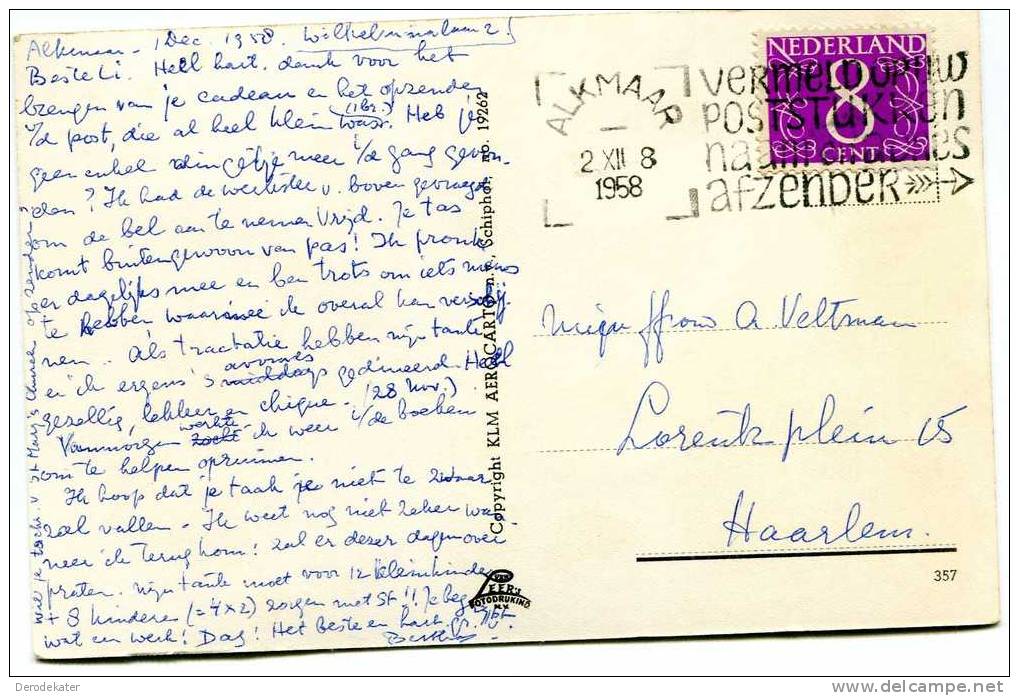 Alkmaar - 1 Dec. 1958. Wilhelminalaan 2!
Beste Li. Heel hart. dank voor het
brengen van je cadeau en het opzenden
(1 br.)
v/d post, die al heel klein was. Heb je
geen enkel dingetje meer i/d gang gevon-
den? Ik had de werkster v. boven gevraagd
om de bel aan te nemen Vrijd. Je tas
komt buitengewoon van pas! Ik pronk
er dagelijks mee en ben trots om iets moois
te hebben waarmee ik overal kan verschij-
nen. Als tractatie hebben mijn tante
avonds
en ik ergens 's middags gedineerd. Heel
gezellig, lekker en chique. (28 Nov.)
werkte
Vanmorgen zocht ik weer i/de boeken
om te helpen opruimen.
Ik hoop dat je taak je niet te zwaar
zal vallen - Ik weet nog niet zeker wan-
neer ik terug kom! zal er dezer dagen over
praten. mijn tante moet voor 12 kleinkinderen
+ 8 kinderen (= 4 x 2) zorgen met St.!! Je begrijpt
wat een werk! Dag! Het Beste en hart. gr.
wil je tochr. v. St Mary's Church opzenden
Copyright KLM AEROCARTO n.v., Schiphol, no. 19262
VAN LEER'S
FOTODRUKIND
N.V.
NEDERLAND
8
CENT
ALKMAAR
2.XII 8
1958
vermeld op uw
poststukken
naam en adres
afzender
Mejuffrouw A Veltman
Lorentzplein 15
Haarlem.
357
Derodekater
delcampe.net